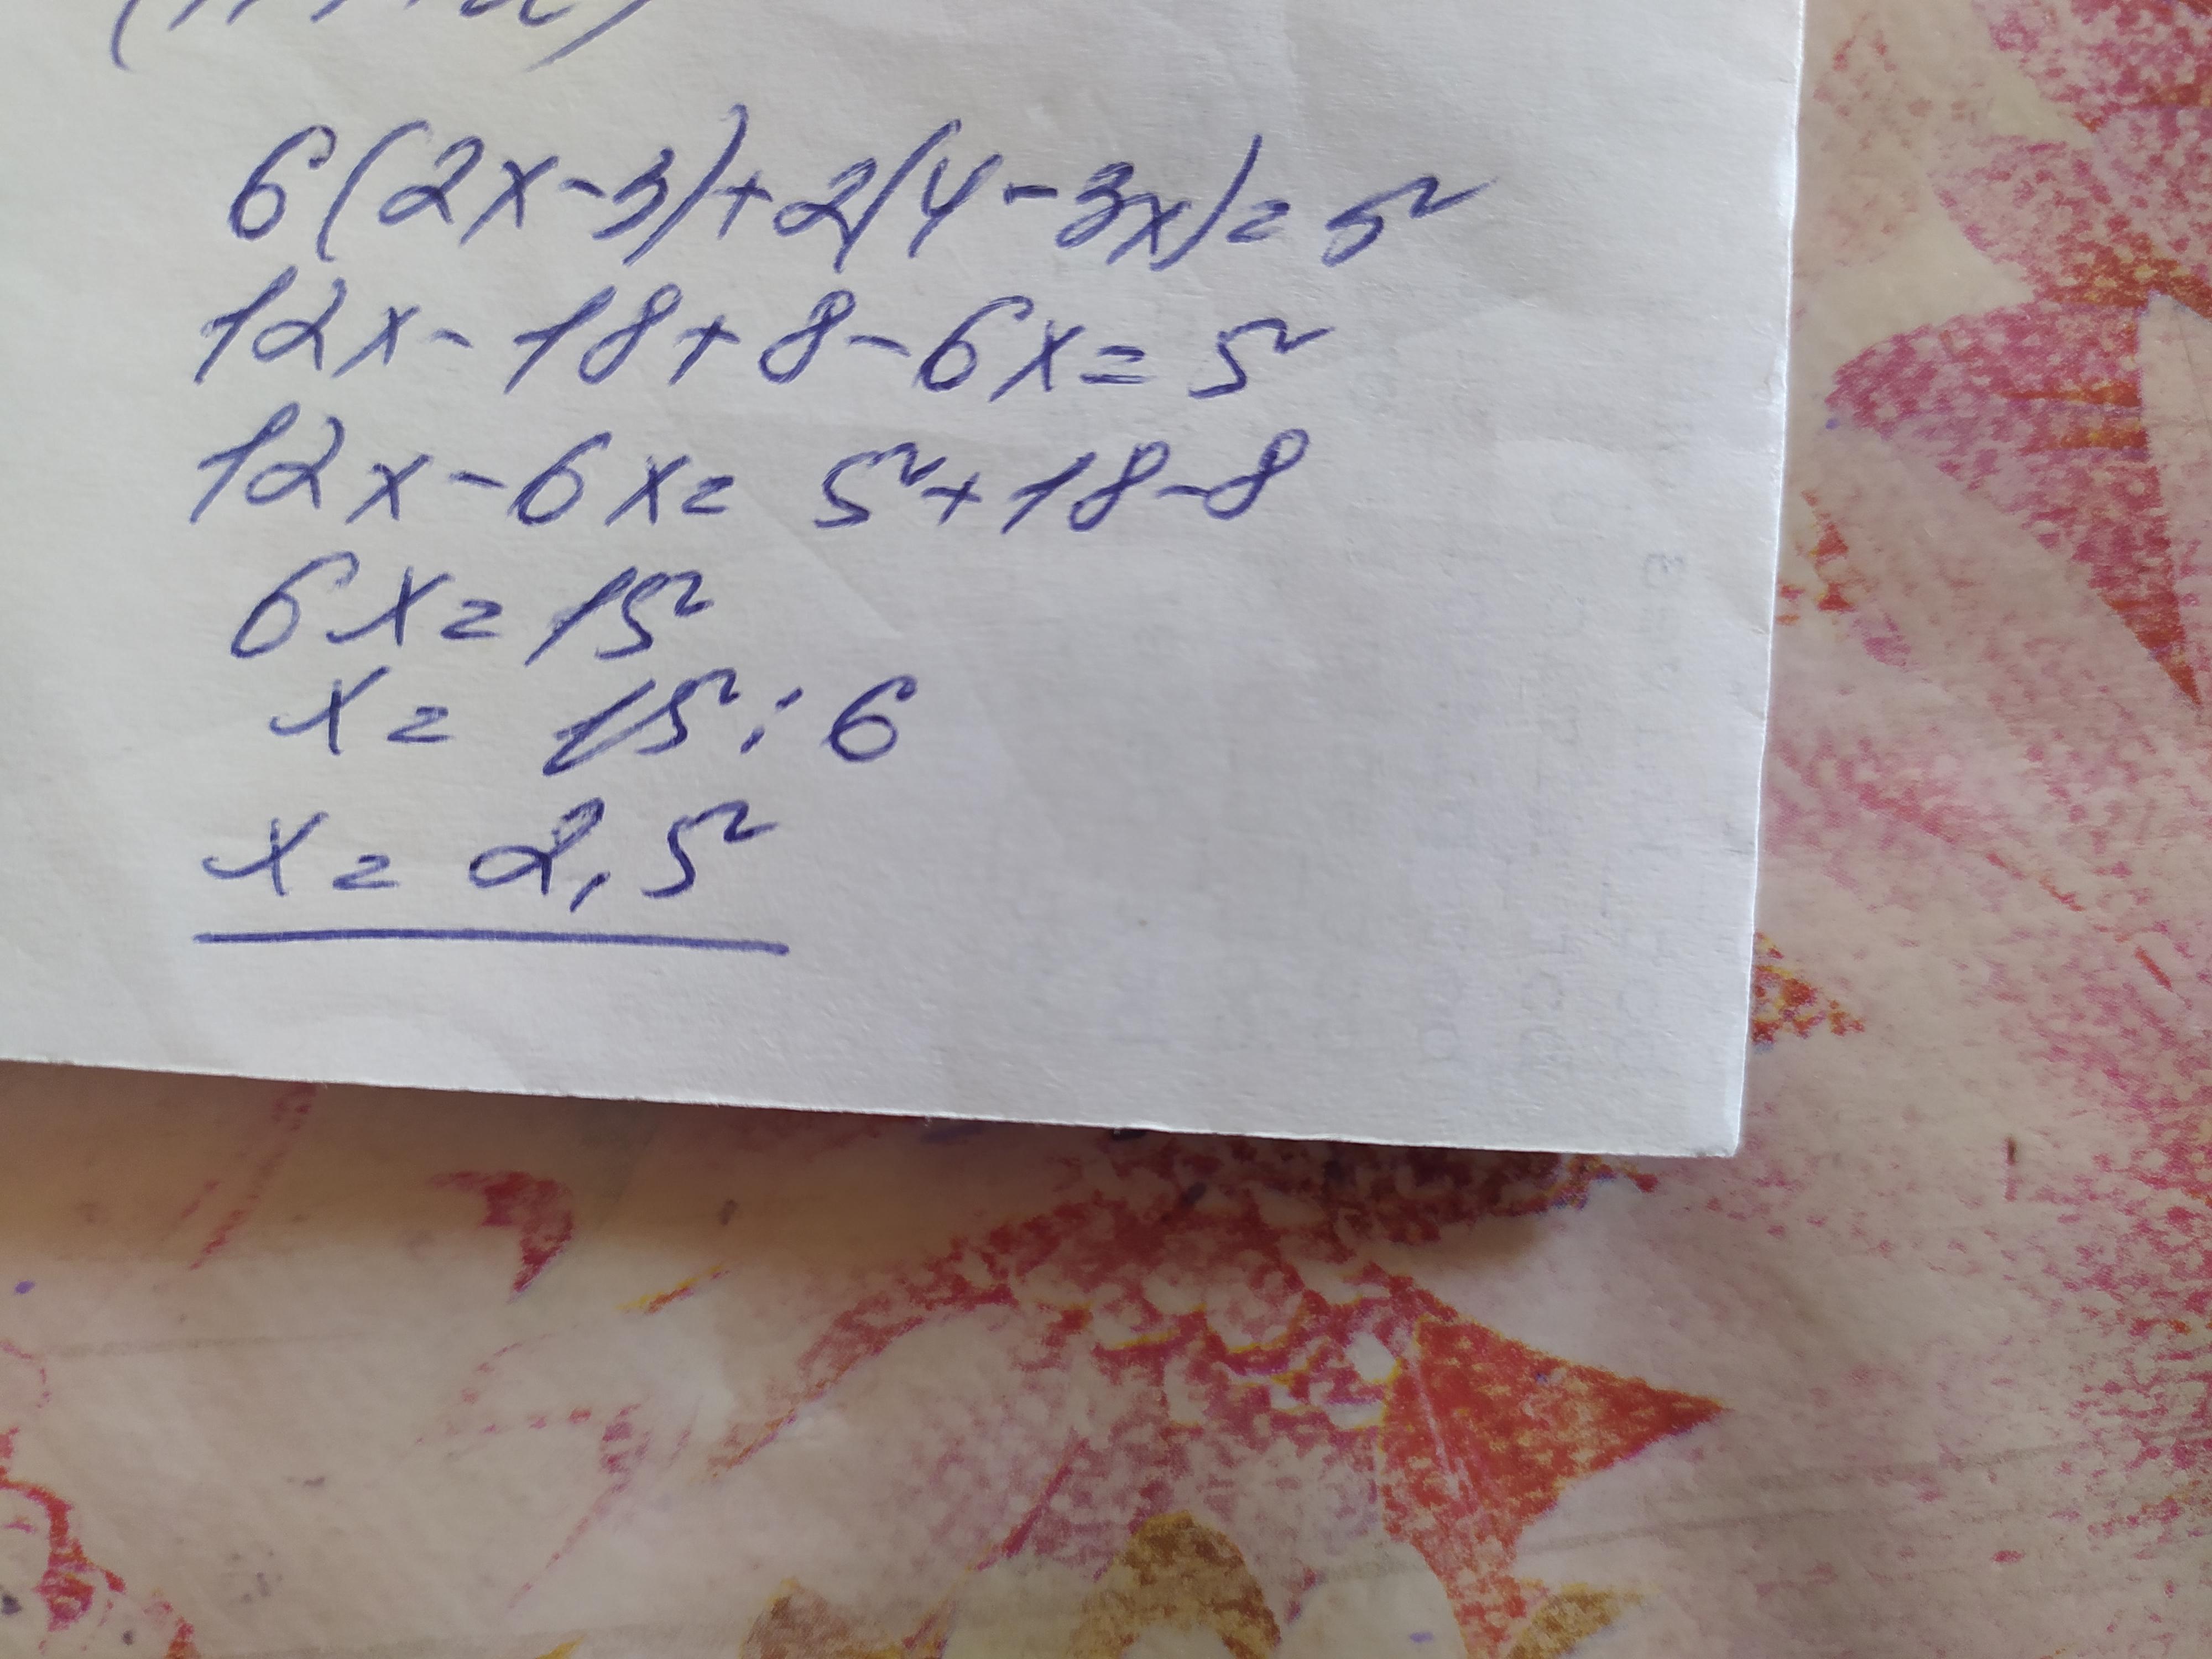 6(2x-3)+2(4-3x)=5
12x-18+8-6x=5
12x-6x=5+18-8
6x=15
x=15:6
x=2,5